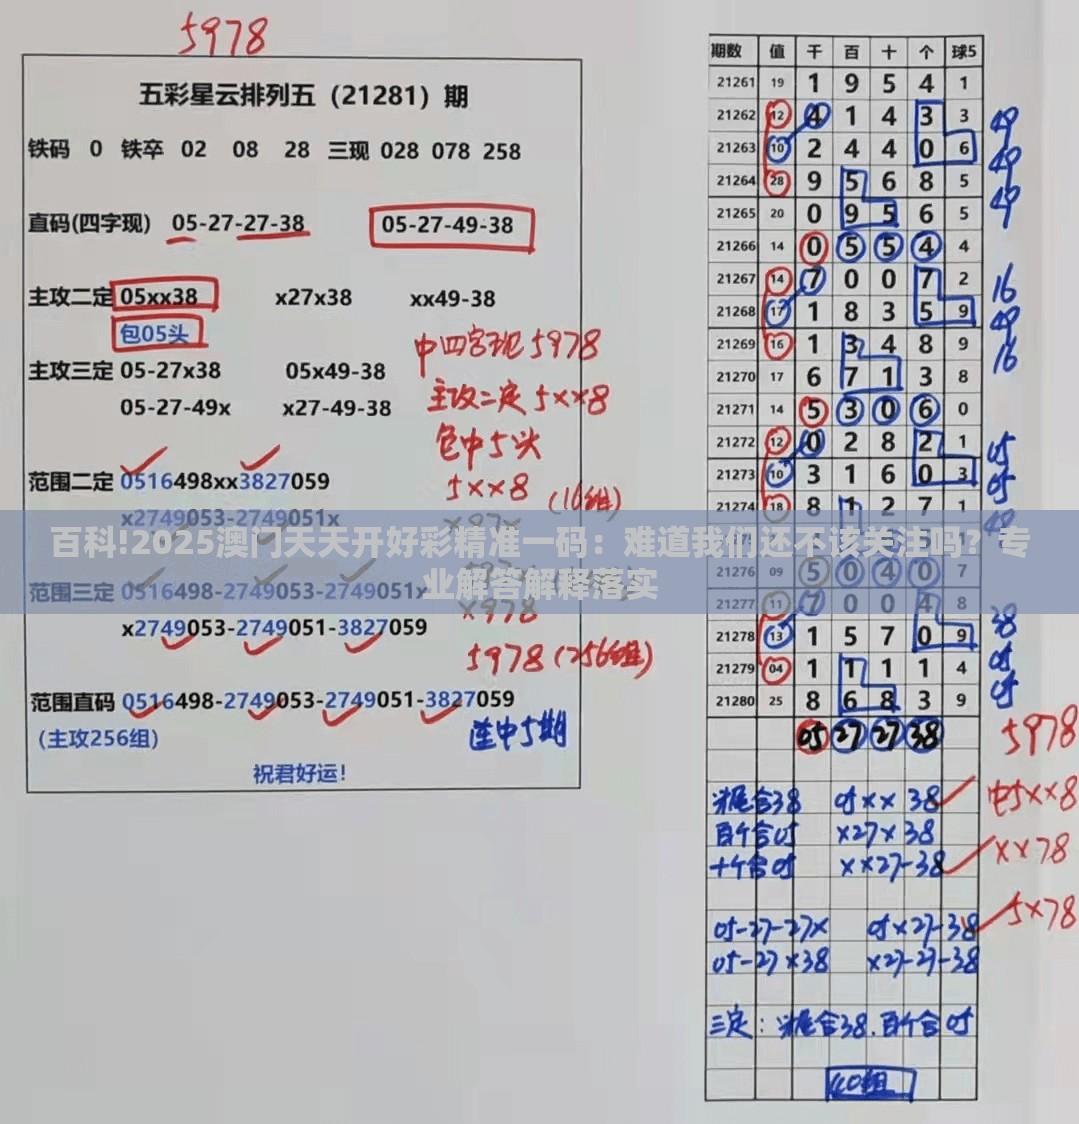 5978
五彩星云排列五（21281）期
铁码 0 铁卒 02 08 28 三现 028 078 258
直码(四字现) 05-27-27-38 05-27-49-38
主攻二定 05xx38 x27x38 xx49-38
包05头
主攻三定 05-27x38 05x49-38
05-27-49x x27-49-38
中四字现5978
主攻二定5xx8
包中5头
5xx8 (16组)
范围二定 0516498xx3827059
x2749053-2749051x
x97x
范围三定 0516498-2749053-2749051x
x2749053-2749051-3827059
x978
5978(256组)
范围直码 0516498-2749053-2749051-3827059
(主攻256组)
连中5期
祝君好运!
百科!2025澳门天天开好彩精准一码：难道我们还不该关注吗？专
业解答解释落实
期数 值 千 百 十 个 球5
21261 19 1 9 5 4 1
21262 12 4 1 4 3 3 49
21263 10 2 4 4 0 6 49
21264 28 9 5 6 8 5 49
21265 20 0 9 5 6 5
21266 14 0 5 5 4 4
21267 14 7 0 0 7 2 16
21268 17 1 8 3 5 9 49
21269 16 1 3 4 8 9 16
21270 17 6 7 1 3 8
21271 14 5 3 0 6 0
21272 12 0 2 8 2 1 05
21273 10 3 1 6 0 3 05
21274 18 8 1 2 7 1 49
21276 09 5 0 4 0 7
21277 11 7 0 0 4 8
21278 13 1 5 7 0 9 38
21279 04 1 1 1 1 4 05
21280 25 8 6 8 3 9 05
05 27 27 38 5978
头尾合38 05xx38 中5xx8
百个合05 x27x38
十个合05 xx27-38 xx78
05-27-27x 05x27-38 5x78
05-27x38 x27-27-38
三定：头尾合38.百个合05
40组